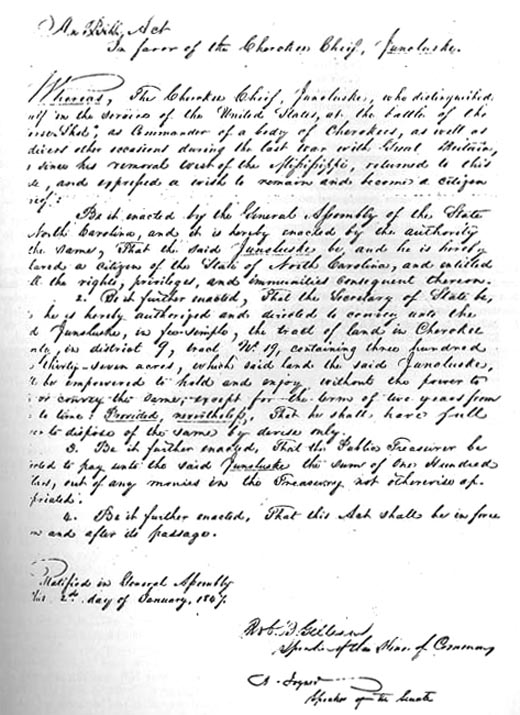 An Act
In favor of the Cherokee Chief, Junoluske.
Whereas, The Cherokee Chief, Junoluske, who distinguished
elf in the service of the United States, at the battle of the
orse Shoe", as Commander of a body of Cherokees, as well as
divers other occasions during the last war with Great Britain,
since his removal West of the Mississippi, returned to this
te, and expressed a wish to remain and become a citizen
reof:
Be it enacted by the General Assembly of the State
North Carolina, and it is hereby enacted by the authority
the same, That the said Junoluske be, and he is hereby
lared a citizen of the State of North Carolina, and entitled
the rights, privileges, and immunities consequent thereon.
2. Be it further enacted, That the Secretary of State be,
he is hereby authorized and directed to convey unto the
d Junoluske, in fee simple, the tract of land in Cherokee
nty, in district 9, tract No. 19, containing three hundred
thirty-seven acres, which said land the said Junoluske,
be empowered to hold and enjoy, without the power to
or convey the same, except for the term of two years from
e to time: Provided, nevertheless, That he shall have full
er to dispose of the same by devise only.
3. Be it further enacted, That the Public Treasurer be
cted to pay unto the said Junoluske the sum of One Hundred
lars, out of any monies in the Treasury not otherwise ap-
priated.
4. Be it further enacted, That this Act shall be in force
m and after its passage.
Ratified in General Assembly
this 2nd day of January, 1847.
Rob. B. Gilliam
Speaker of the House of Commons
Speaker of the Senate